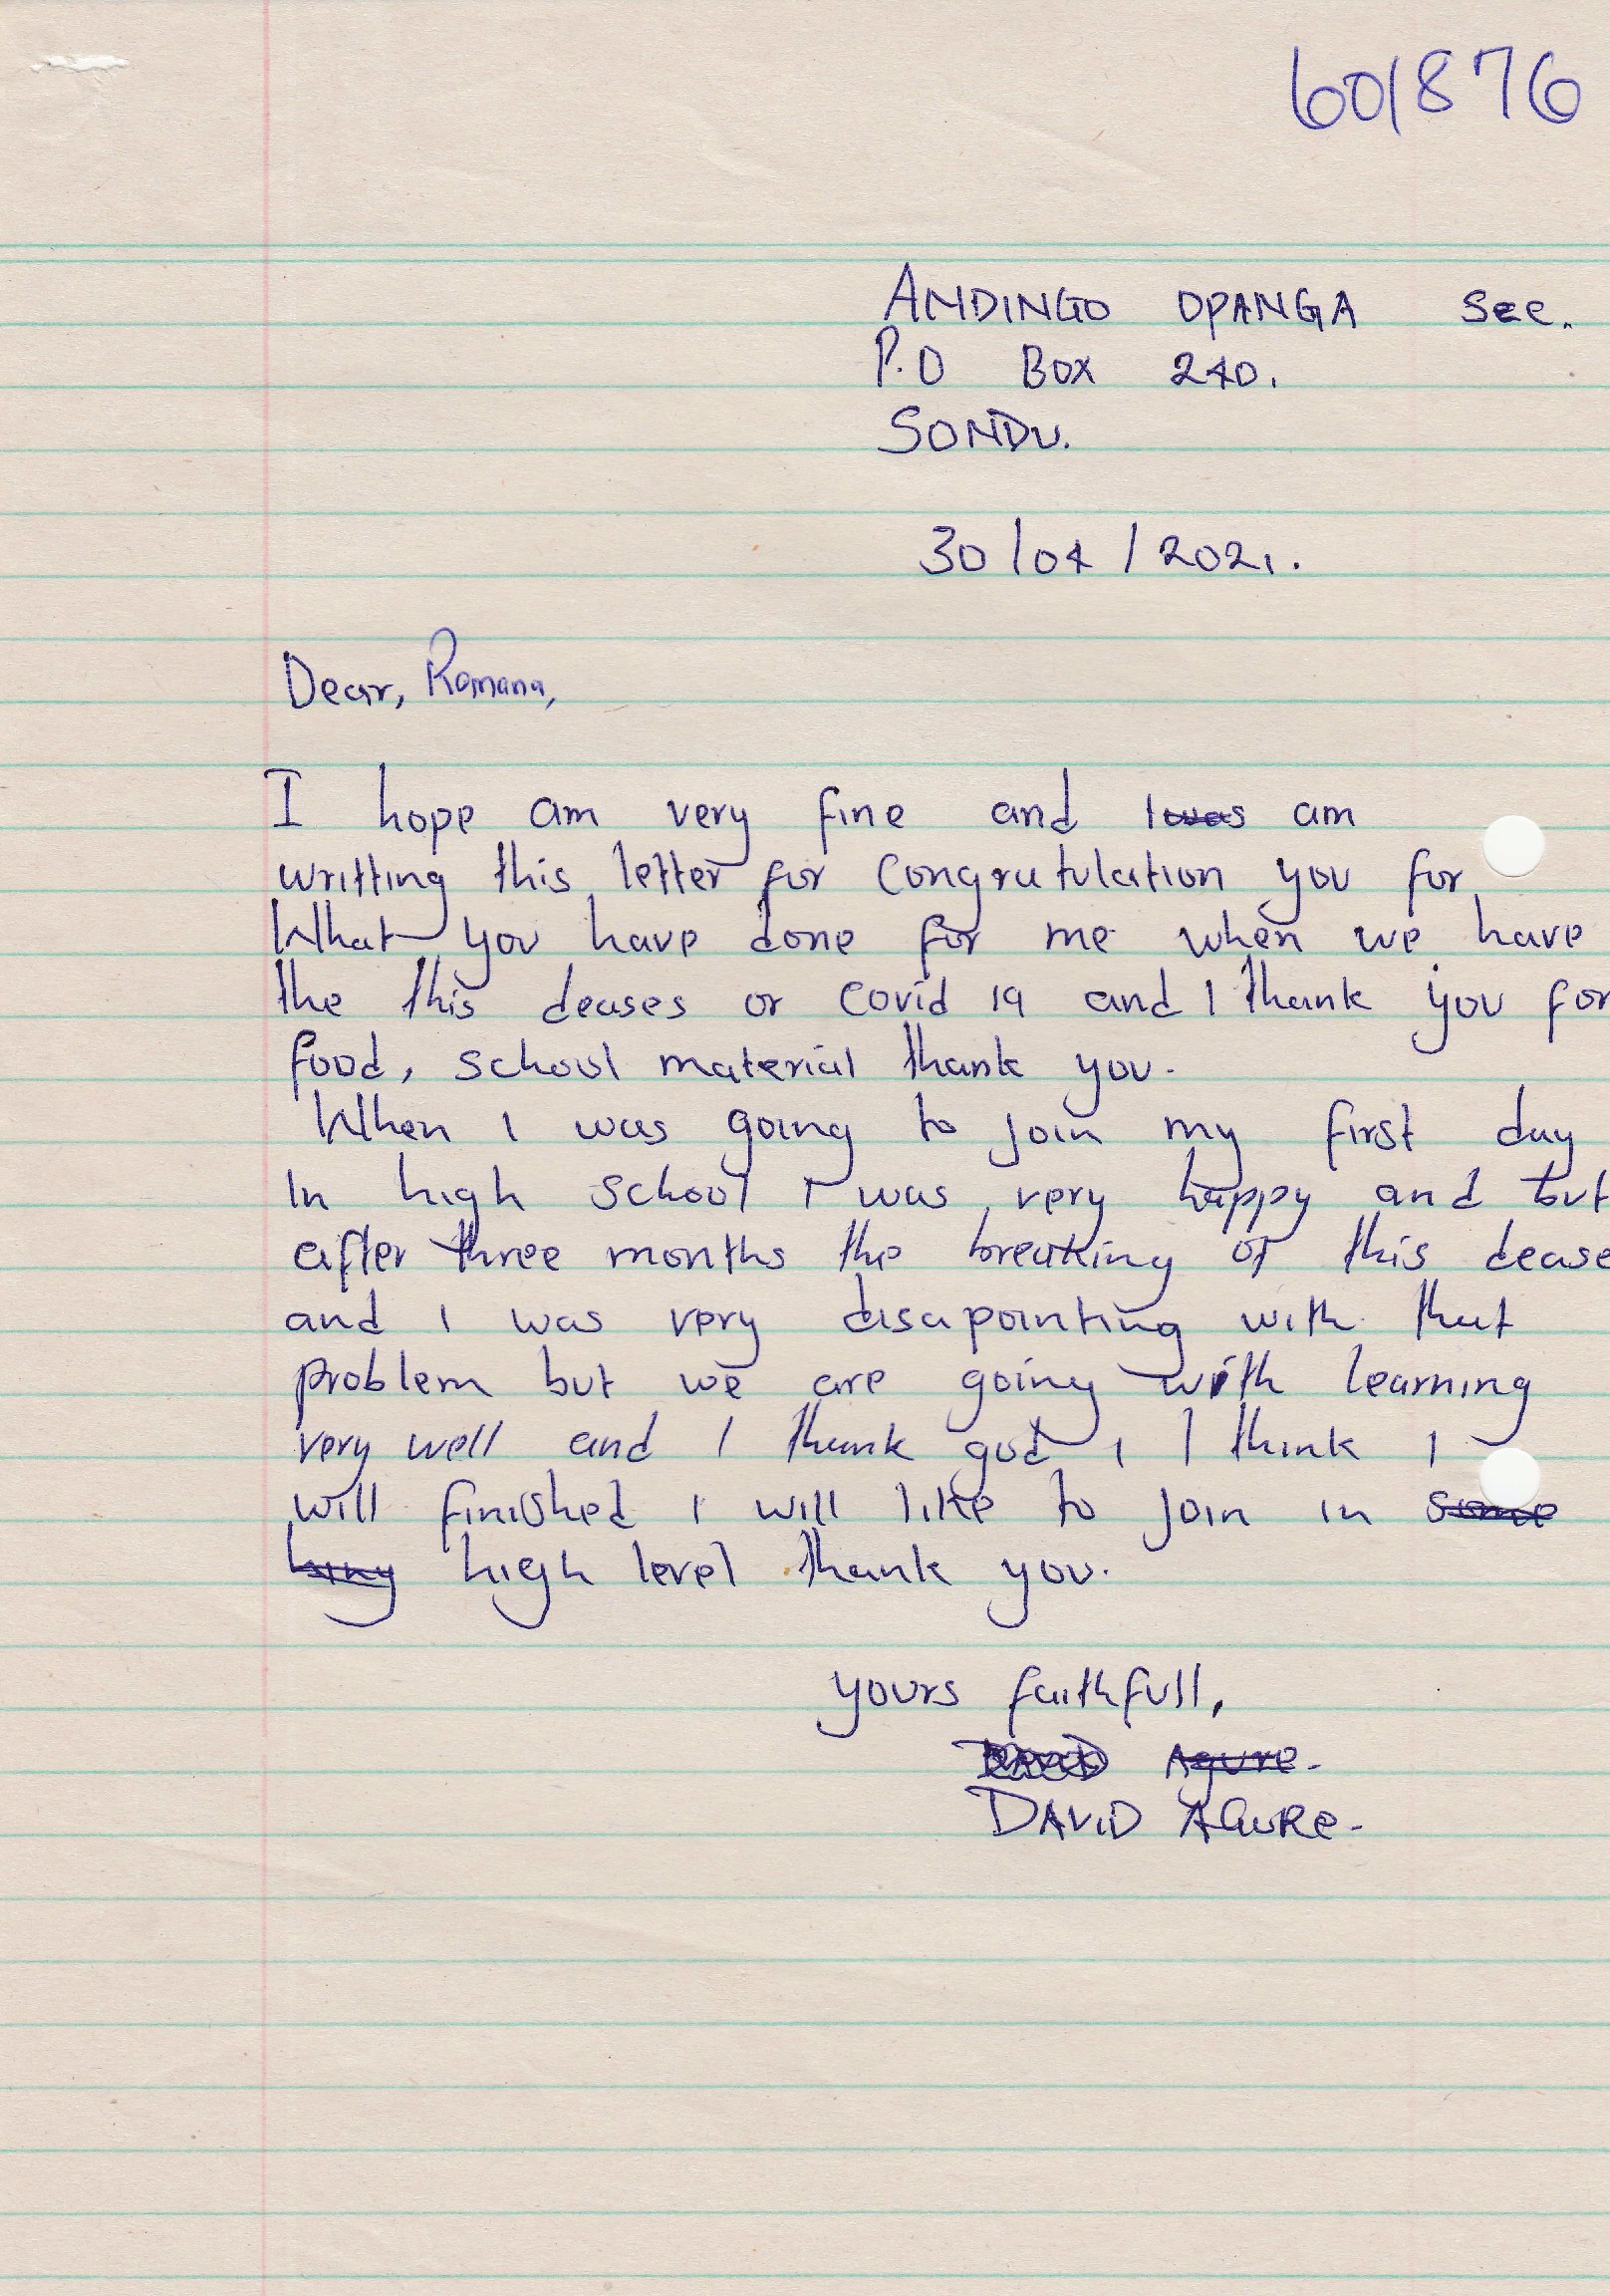 601876
ANDINGO OPANGA Sec.
P.O Box 240.
SONDU.
30/04/2021.
Dear, Romana,
I hope am very fine and am
writting this letter for Congratulation you for
What you have done for me when we have
the this deases or Covid 19 and I thank you for
food, school material thank you.
When I was going to join my first day
In high school I was very happy and but
after three months the breaking of this dease
and I was very disapointing with that
problem but we are going with learning
very well and I thank god, I think I
will finished I will like to join in some
high level thank you.
yours faithfull,
Agure.
DAVID AGURE.